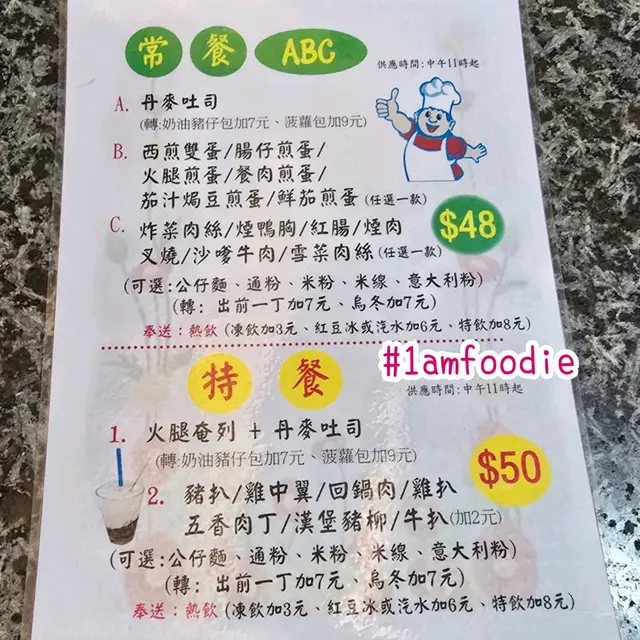 常餐 ABC
供應時間:中午11時起
A. 丹麥吐司
(轉:奶油豬仔包加7元、菠蘿包加9元)
B. 西煎雙蛋/腸仔煎蛋/
火腿煎蛋/餐肉煎蛋/
茄汁焗豆煎蛋/鮮茄煎蛋(任選一款)
C. 炸菜肉絲/煙鴨胸/紅腸/煙肉
叉燒/沙嗲牛肉/雪菜肉絲(任選一款)
$48
(可選:公仔麵、通粉、米粉、米線、意大利粉)
(轉: 出前一丁加7元、烏冬加7元)
奉送:熱飲 (凍飲加3元、紅豆冰或汽水加6元、特飲加8元)
#1amfoodie
特餐
供應時間:中午11時起
1. 火腿奄列 + 丹麥吐司
(轉:奶油豬仔包加7元、菠蘿包加9元)
$50
2. 豬扒/雞中翼/回鍋肉/雞扒
五香肉丁/漢堡豬柳/牛扒(加2元)
(可選:公仔麵、通粉、米粉、米線、意大利粉)
(轉: 出前一丁加7元、烏冬加7元)
奉送:熱飲 (凍飲加3元、紅豆冰或汽水加6元、特飲加8元)